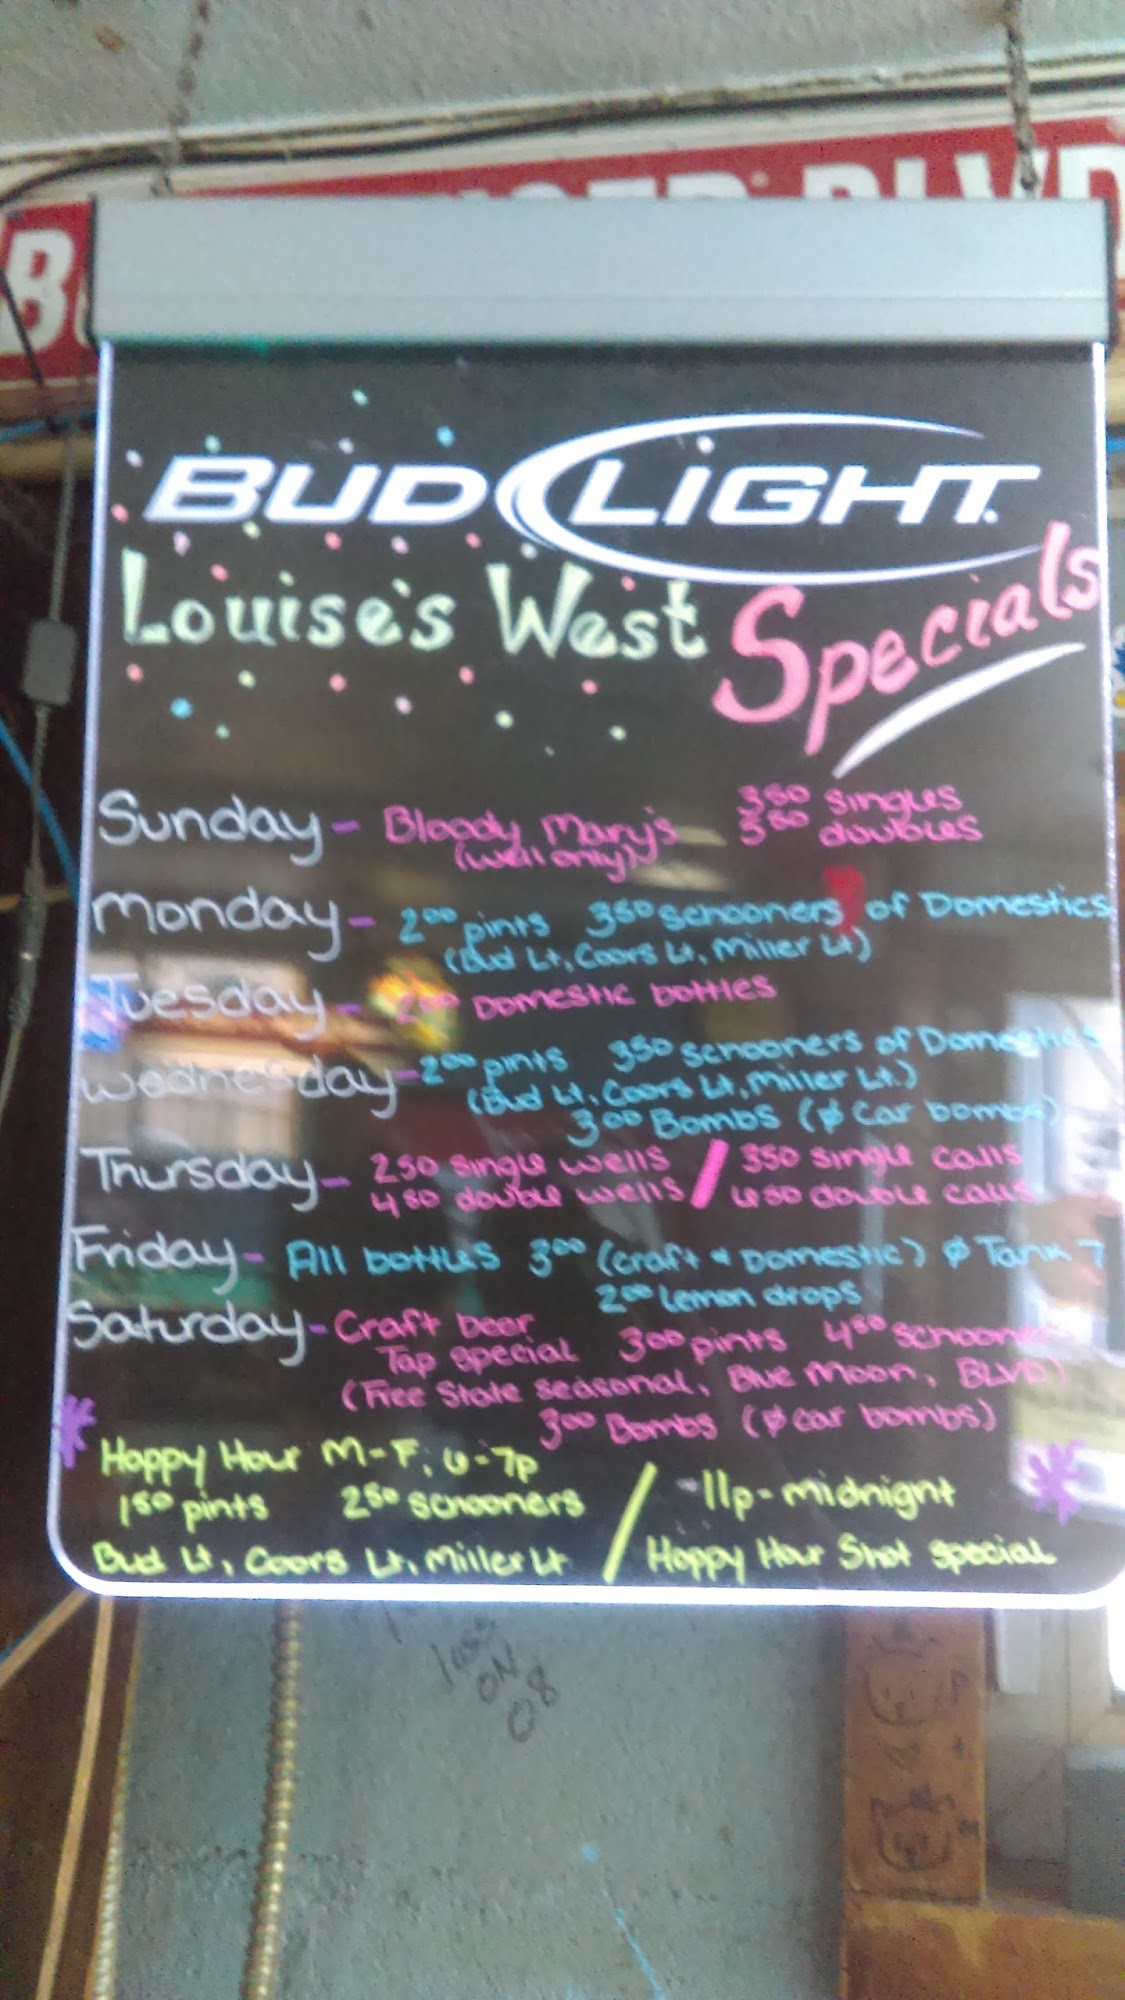 BLVD
BUD LIGHT
Louise's West Specials
Sunday - Bloody Mary's 350 singles
(well only) 550 doubles
Monday - 200 pints 350 schooners of Domestics
(Bud Lt, Coors Lt, Miller Lt)
Tuesday - 200 Domestic bottles
Wednesday - 200 pints 350 schooners of Domestics
(Bud Lt, Coors Lt, Miller Lt.)
300 Bombs (ø car bombs)
Thursday - 250 single wells / 350 single calls
450 double wells / 650 double calls
Friday - All bottles 300 (craft & Domestic) ø Tank 7
200 Lemon drops
Saturday - Craft beer 300 pints 450 schooners
Tap special
(Free State seasonal, Blue Moon, BLVD)
300 Bombs (ø car bombs)
Happy Hour M-F, 6-7p
150 pints 250 schooners / -11p-midnight
Bud Lt, Coors Lt, Miller Lt / Happy Hour Shot special
ON
08